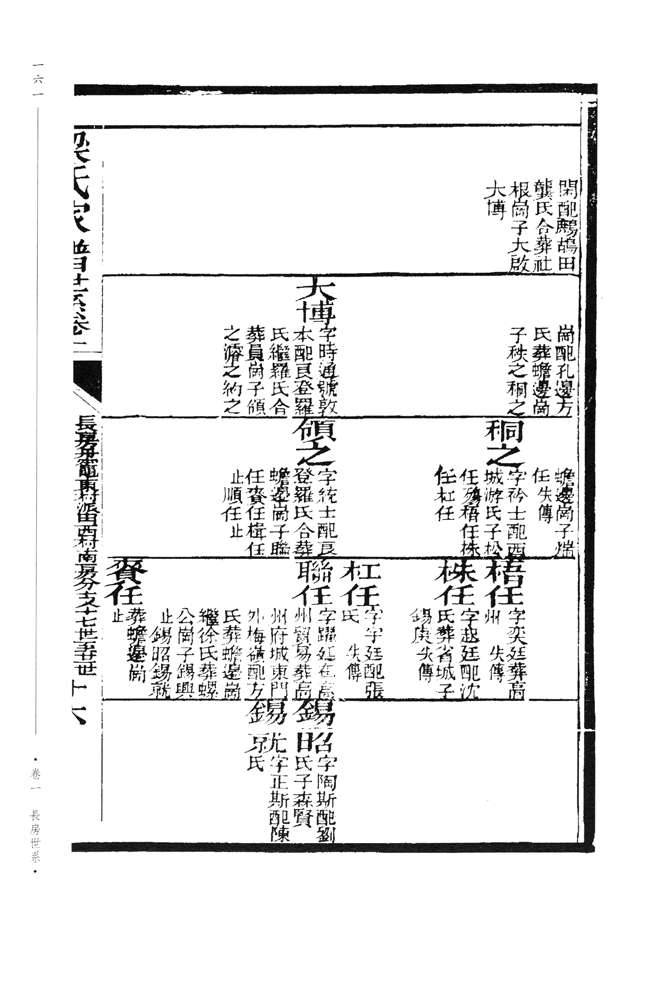 閑配鷓鴣田
龔氏合葬社
根崗子大啟
大博
崗配孔邊方
氏葬蟾邊崗
子秩之秱之
大博
字時通號敦
本配良登羅
氏繼羅氏合
葬員崗子領
之濟之約之
蟾邊崗子耑
任失傳
秱之
字衿士配西
城游氏子松
任殤梧任株
任杠任
領之
字統士配良
登羅氏合葬
蟾邊崗子聯
任賚任楫任
止順任止
梧任
字奕廷葬高
州 失傳
株任
字越廷配沈
氏葬省城子
錫庚失傳
杠任
字宇廷配張
氏 失傳
聯任
字躍廷在高
州貿易葬高
州府城東門
外梅嶺配方
氏葬蟾邊崗
繼徐氏葬螺
公崗子錫興
止錫昭錫就
賚任
葬蟾邊崗
止
錫昭
字陶斯配劉
氏子森賢
字正斯配陳
氏
梁氏家譜世系卷一
十六
一六一
·卷一 長房世系·